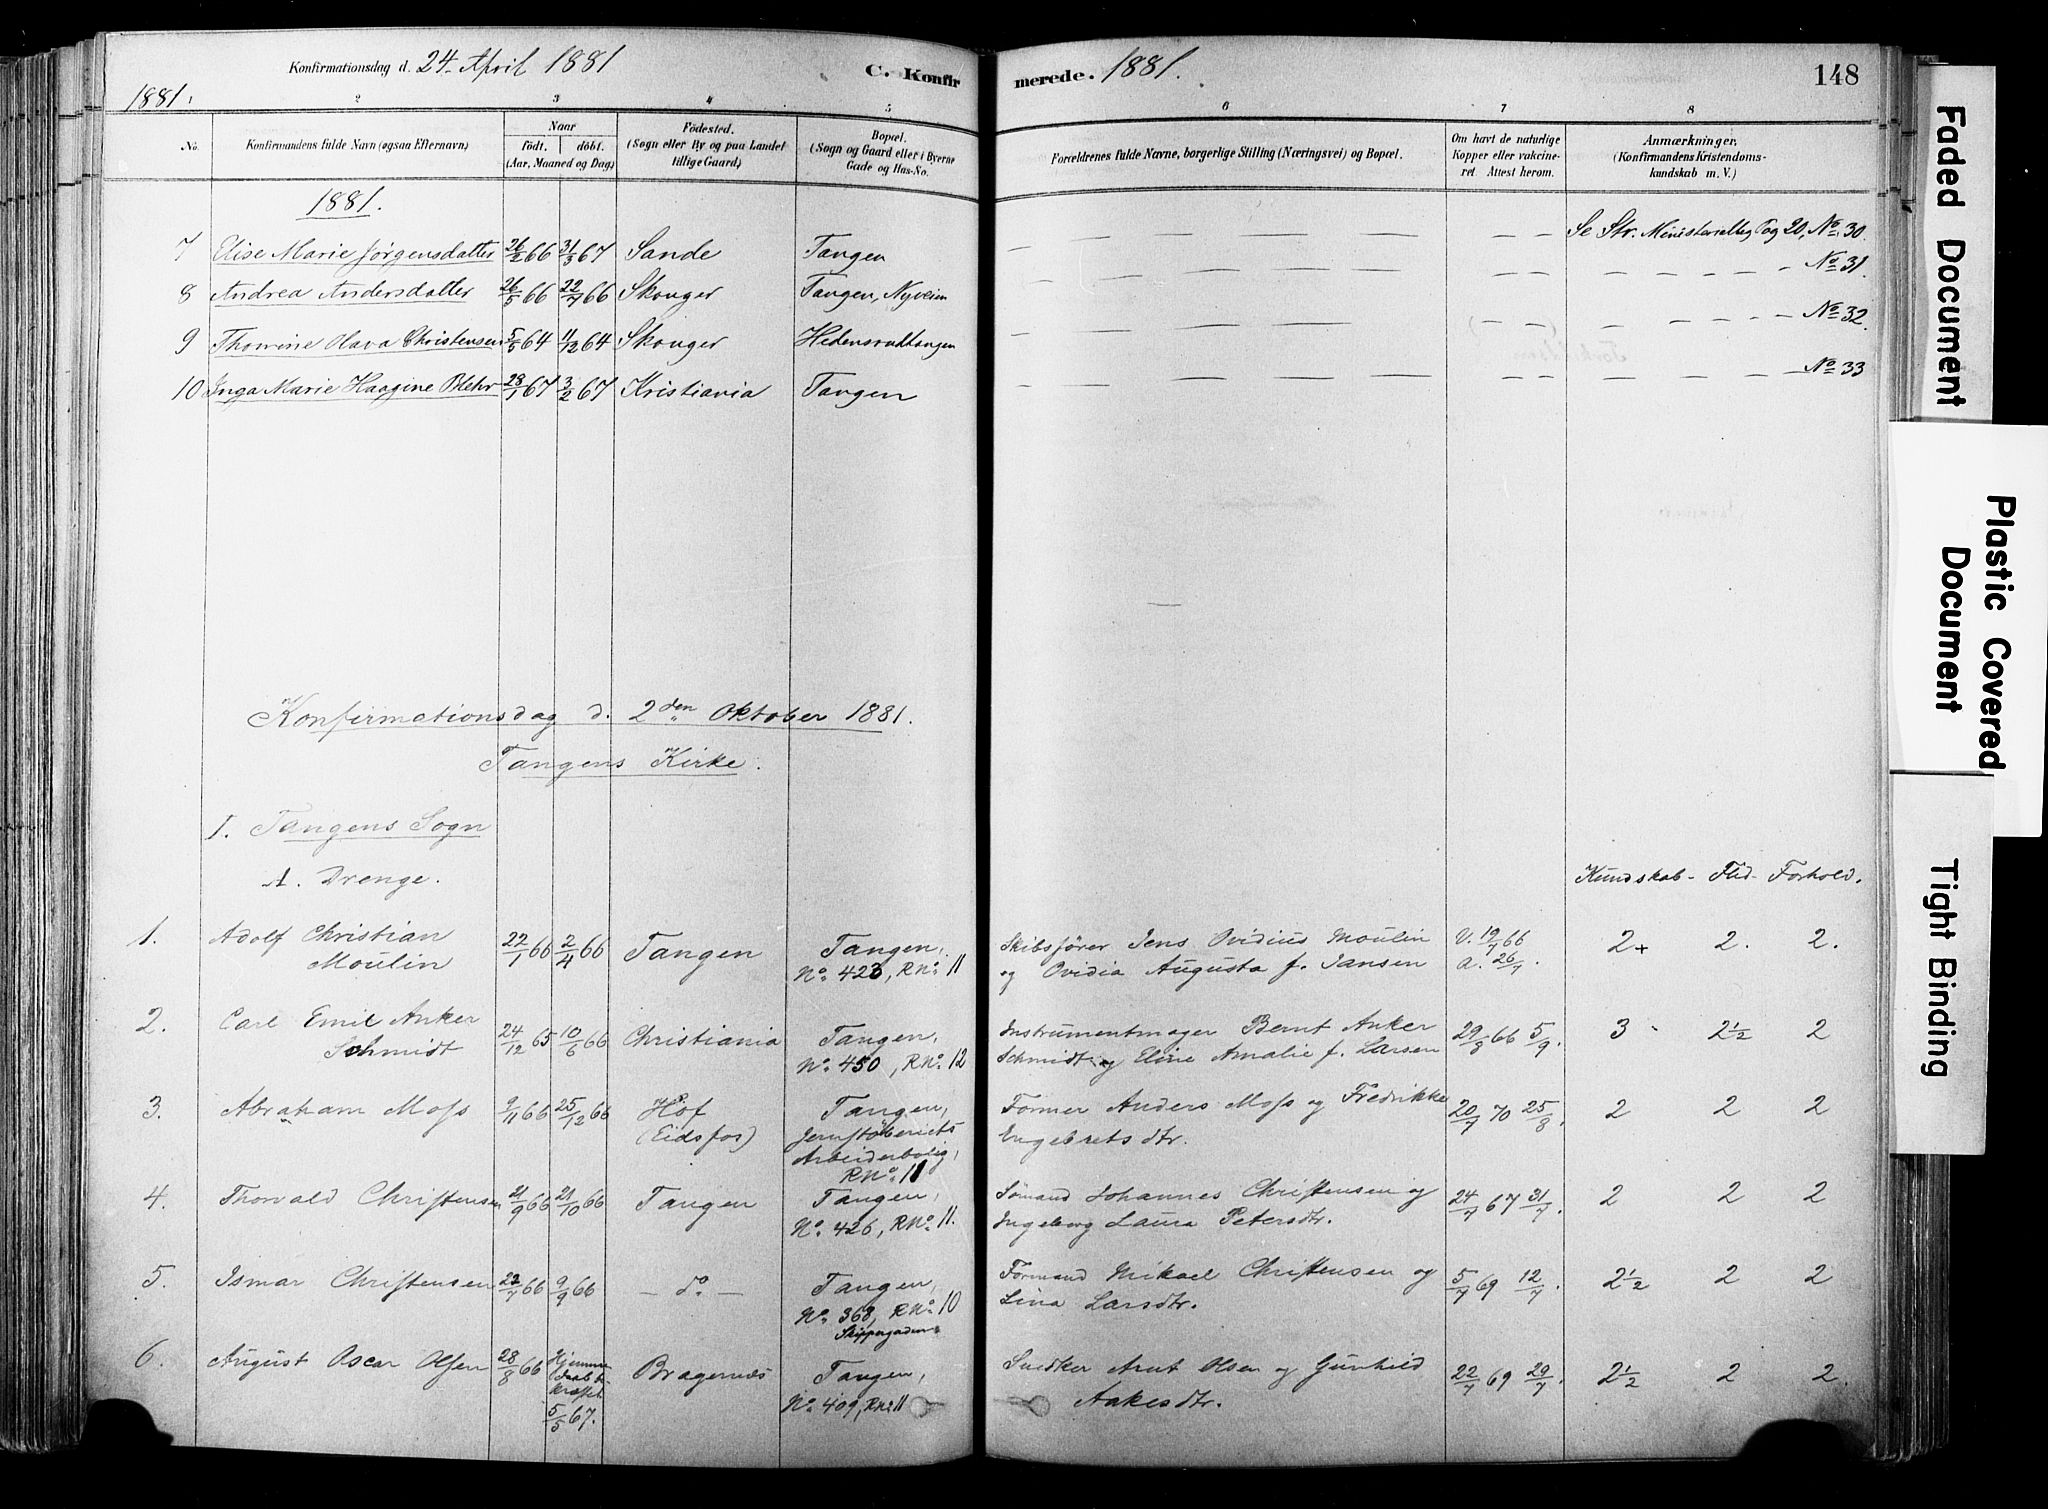 Konfirmationsdag d. 24. April 1881
C. Konfirmerede. 1881.
148
1881.
2 3 4 5 6 7 8
No.
Konfirmandens fulde Navn (ogsaa Efternavn)
Naar
födt. döbt.
(Aar, Maaned og Dag)
Födested.
(Sogn eller By og paa Landet
tillige Gaard)
Bopæl.
(Sogn og Gaard eller i Byerne
Gade og Hus-No.
Forældrenes fulde Navne, borgerlige Stilling (Næringsvei) og Bopæl.
Om havt de naturlige
Kopper eller vakcine-
ret Attest herom.
Anmærkninger.
(Konfirmandens Kristendoms-
kundskab m. V.)
1881.
7 Elise Marie Jörgensdatter 26/2 66 31/3 67 Sande Tangen — — — — — — Se Str. Ministerialbog Pag 20, No. 30.
8 Andrea Andersdatter 26/5 66 22/7 66 Skouger Tangen, Nyveien — — — — — — No. 31.
9 Thomine Olava Christensen 5/5 64 11/12 64 Skouger — — — — — — No. 32.
10 Inga Marie Haagine Blehr 28/1 67 3/2 67 Kristiania Tangen — — — — — — No. 33
Konfirmationsdag d. 2den Oktober 1881.
Tangens Kirke.
I. Tangens Sogn
A. Drenge.
Kundskab - Flid - Forhold.
1. Adolf Christian
Moulin
22/1 66 2/4 66 Tangen
Tangen,
No. 423, RNo. 11
Skibsförer Jens Ovidius Moulin
og Ovidia Augusta f. Jansen
V. 19/7 66
A. 26/7.
2+ 2. 2.
2. Carl Emil Anker
Schmidt
24/12 65 10/6 66 Christiania
Tangen,
No. 450, RNo. 12
Instrumentmager Bernt Anker
Schmidt og Eline Amalie f. Larsen
29/8 66 5/9.
3 2½ 2
3. Abraham Moss
9/11 66 25/12 66
Hof
(Eidsfos)
Tangen,
Jernstöberiets
Arbeiderbolig,
RNo. 11
Former Anders Moss og Fredrikke
Engebretsdtr.
20/7 70 25/8.
2 2 2
4. Thorvald Christensen
21/9 66 21/10 66 Tangen
Tangen,
No. 426, RNo. 11.
Sömand Johannes Christensen og
Ingeborg Laura Petersdtr.
24/7 67 31/7.
2 2 2
5. Ismar Christensen
22/7 66 9/9 66 — do —
Tangen,
No. 368, RNo. 10
Skippergaden
Formand Mikael Christensen og
Lina Larsdtr.
5/7 69 12/7.
2½ 2 2
6. August Oscar Olsen
28/8 66
Hjemme
daab
5/5 67.
Bragernæs
Tangen,
No. 409, RNo. 11
Snedker Arnt Olsen og Gunhild
Aakesdtr.
22/7 69 29/7.
2½ 2 2.
Faded Document
Plastic Covered
Document
Tight Binding